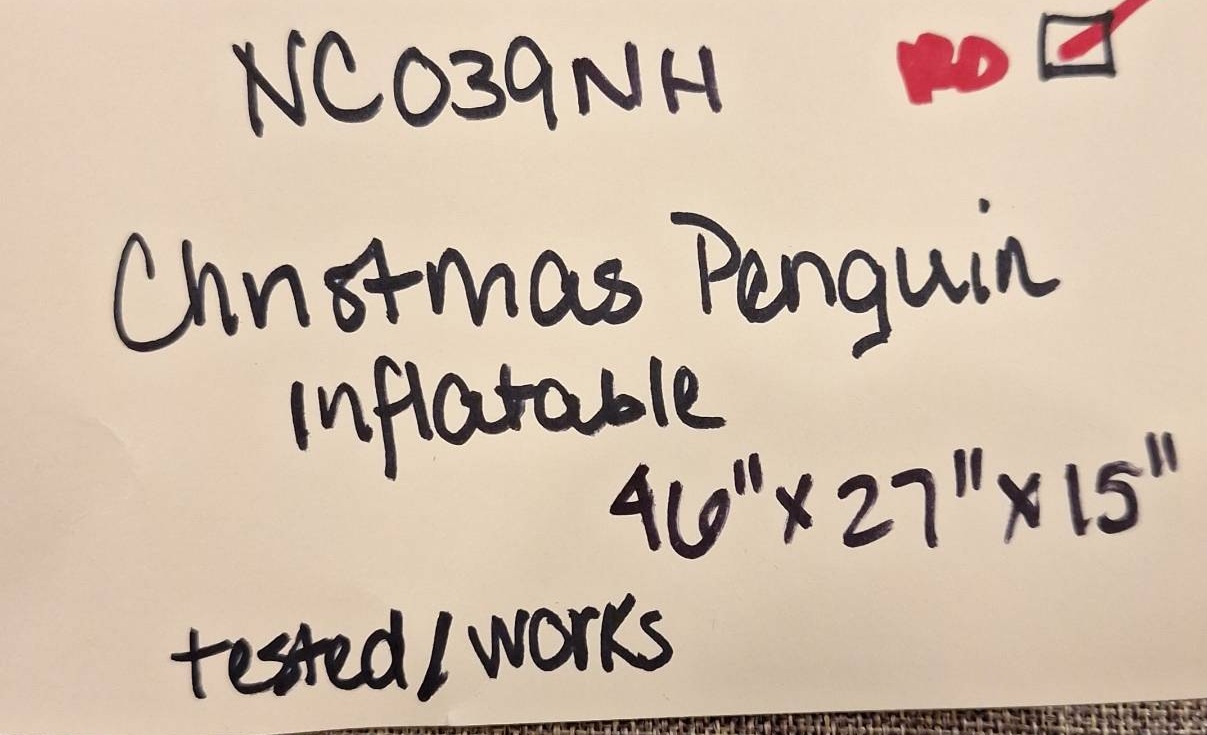 NC039NH
Christmas Penguin
Inflatable
46" x 27" x 15"
tested/works